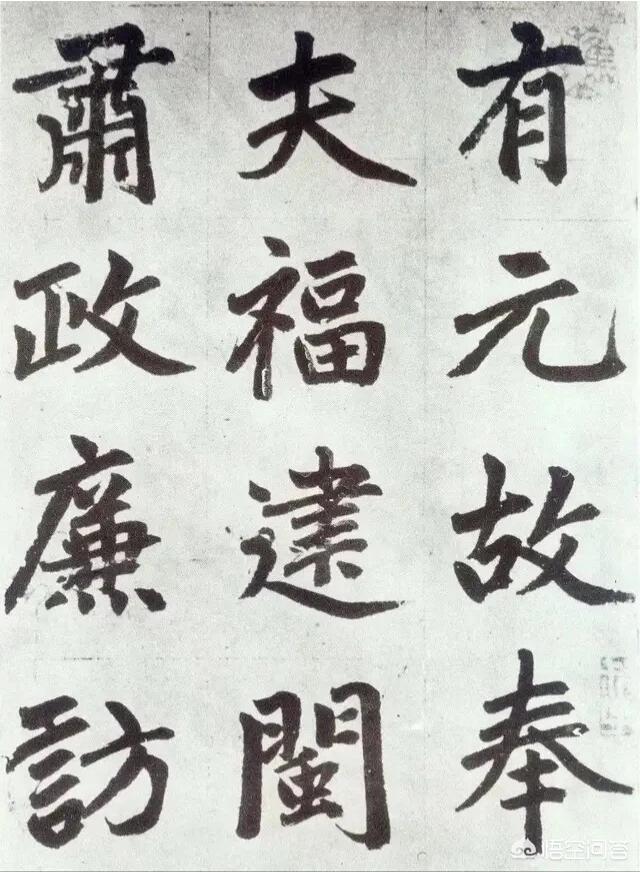 有元故奉
夫福建閩
肅政廉訪
悟空问答